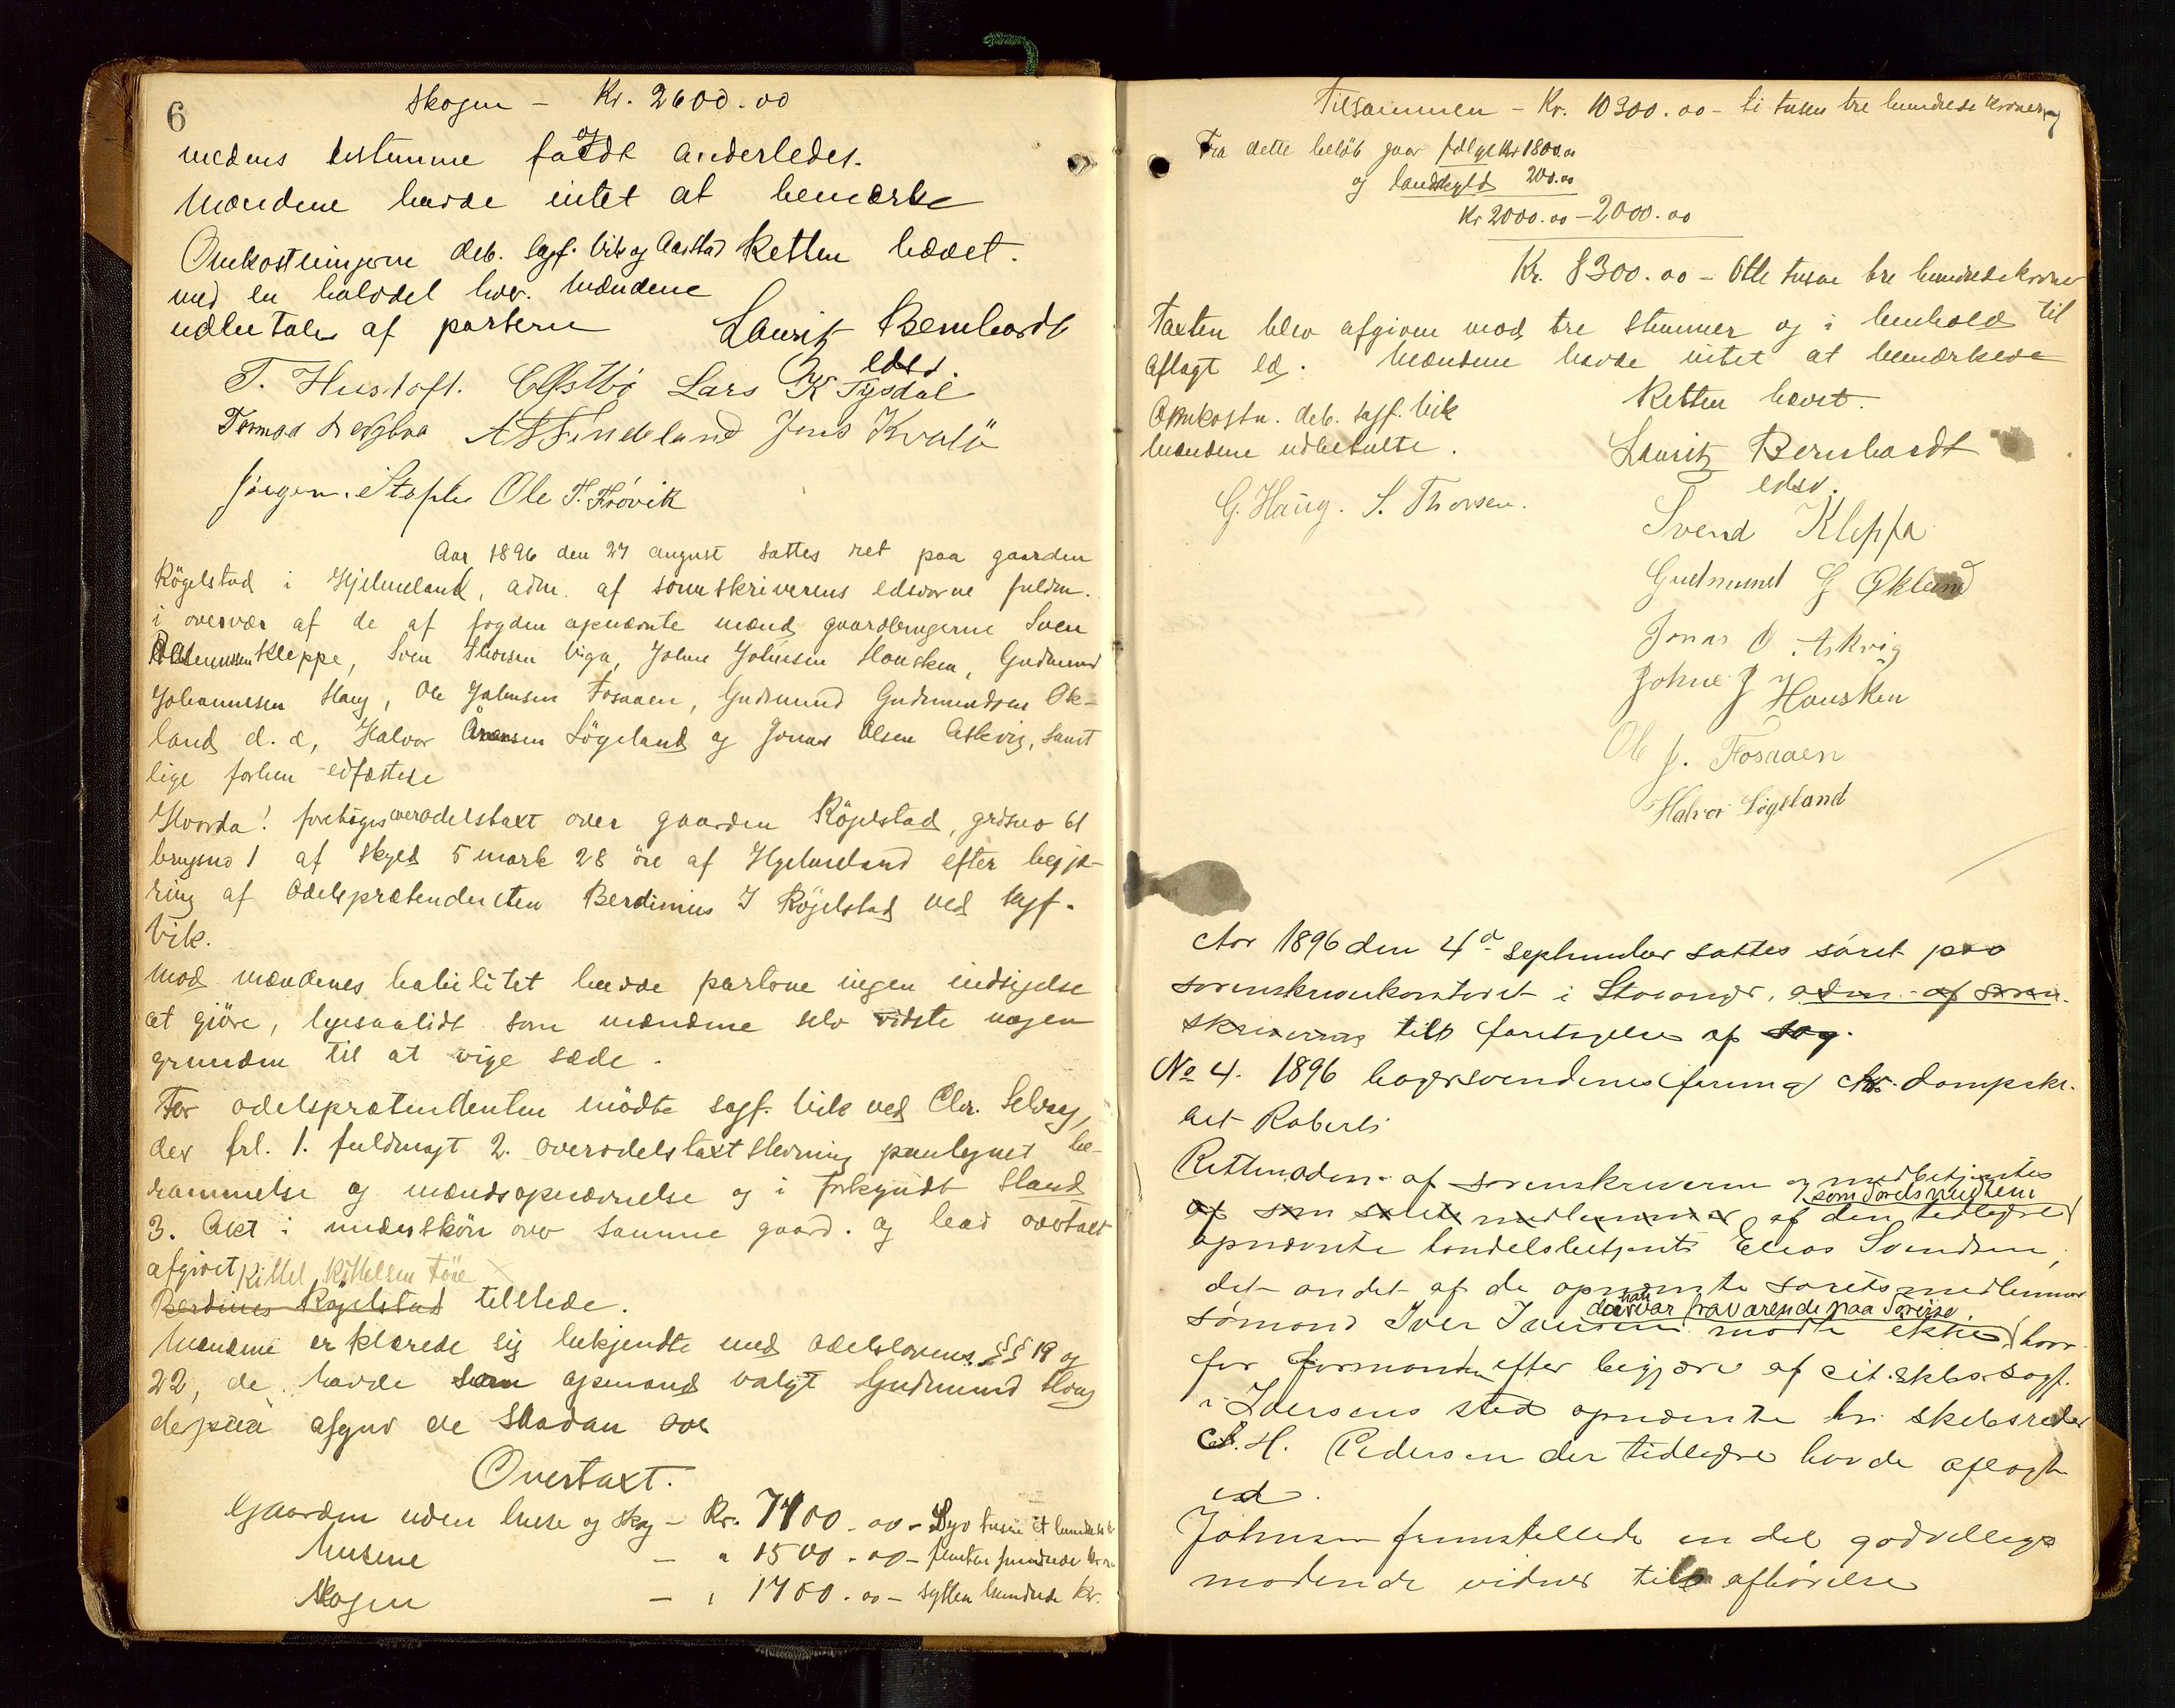 6
Skogen – Kr. 2600.00
medens bistemme faldt anderledes.
Mændene havde intet at bemærke
Omkostningerne deb. sagf. Vik og Aarstad Retten hævet.
med en halvdel hver. Mændene
udbetales af parterne Lauritz Bernhardt
edsv.
T. Hustoft. Lars K Tysdal
A S Sindeland Jens Kvalø
Jørgen Ole T. Frøvik
Aar 1896 den 27 august sattes ret paa gaarden
Røgelstad i Hjelmeland, adm. af sorenskriverens edsvorne fuldm.
i overvær af de af fogden opnævnte mænd gaardbrugerne Sven
Kleppe, Sven Thorsen Viga, Johne Johnsen Hausken, Gudmund
Johannessen Haug, Ole Johnsen Fosaaen, Gudmund Gudmundsen Øk-
land d. æ, Halvor Løgeland og Jonas Olsen Askvig, samt
lige forhen edfæstede
Hvorda! foretoges overodelstaxt over gaarden Røgelstad, grdsno 61
brugsno 1 af skyld 5 mark 28 øre af Hjelmeland efter begjæ-
ring af odelsprætendenten Berdinius I Røgelstad ved sagf.
Vik.
Mod mændenes habilitet havde parterne ingen indsigelse
at gjøre, ligesaalidt som mændene selv vidste nogen
grunden til at vige sæde.
For odelsprætendenten mødte sagf. Vik ved Chr. Selvaag,
der frl. 1. fuldmagt 2. overodelstaxt stevning paategnet be-
rammelse og mændsopnævnelse og i forkyndt stand
3. Akt i underskjøn over samme gaard. og bad overtaxt
afgivet Kittel Kittelsen Føre
Berdines Røgelstad tilstede.
Mændene erklærede sig bekjendte med odelslovens §§ 19 og
22, de havde som opmand valgt Gudmund Haug
derpaa afgav de saadan
Overtaxt.
Gaarden uden huse og skog – Kr. 7100.00 – Syv tusen et hundrede kr
Husene – " 1500.00 – femten hundrede kroner
Skogen – " 1700.00 – sytten hundrede kr.
Tilsammen – Kr. 10300.00 – ti tusen tre hundrede kroner
Fra dette beløb gaar følge Kr 1800.00
og landskyld 200.00
Kr 2000.00 – 2000.00
Kr. 8300.00 – Otte tusen tre hundrede kroner
Taxten blev afgiven mod tre stemmer og i henhold til
aflagt ed. Mændene havde intet at bemærke
Omkostn. deb. sagf. Vik Retten hævet.
Mændene udbetalte. Lauritz Bernhardt
edsv.
G. Haug. S. Thorsen.
Svend Kleppa
Gudmund G Økland
Jonas O Askvig
Johne J Hausken
Ole J. Fosaaen
Halvor Løgeland
Aar 1896 den 4d september sattes søret paa
sorenskriverkontoret i Stavanger, adm. af soren-
skriverens till foretagelse af sag.
No 4. 1896 bergersvendenes forening ctr. dampski-
bet Roberts
Retten adm. af sorenskriveren og medbetjentes
som sørets medlem
af som sørets medlemmer af den tidligere
opnævnte handelsbetjent Elias Svendsen,
det andet af de opnævnte sørets medlemmer
han var fraværende paa soreise
sømand Iver Iversen mødte ikke, hvor-
for formanden efter begjære af cit. skbs. sagf.
i Iversens sted opnævnte hr. skibsreder
C. H. Pedersen der tidligere havde aflagt
ed.
Johnsen fremstillede en del godvillige
mødende vidner till afhørelse